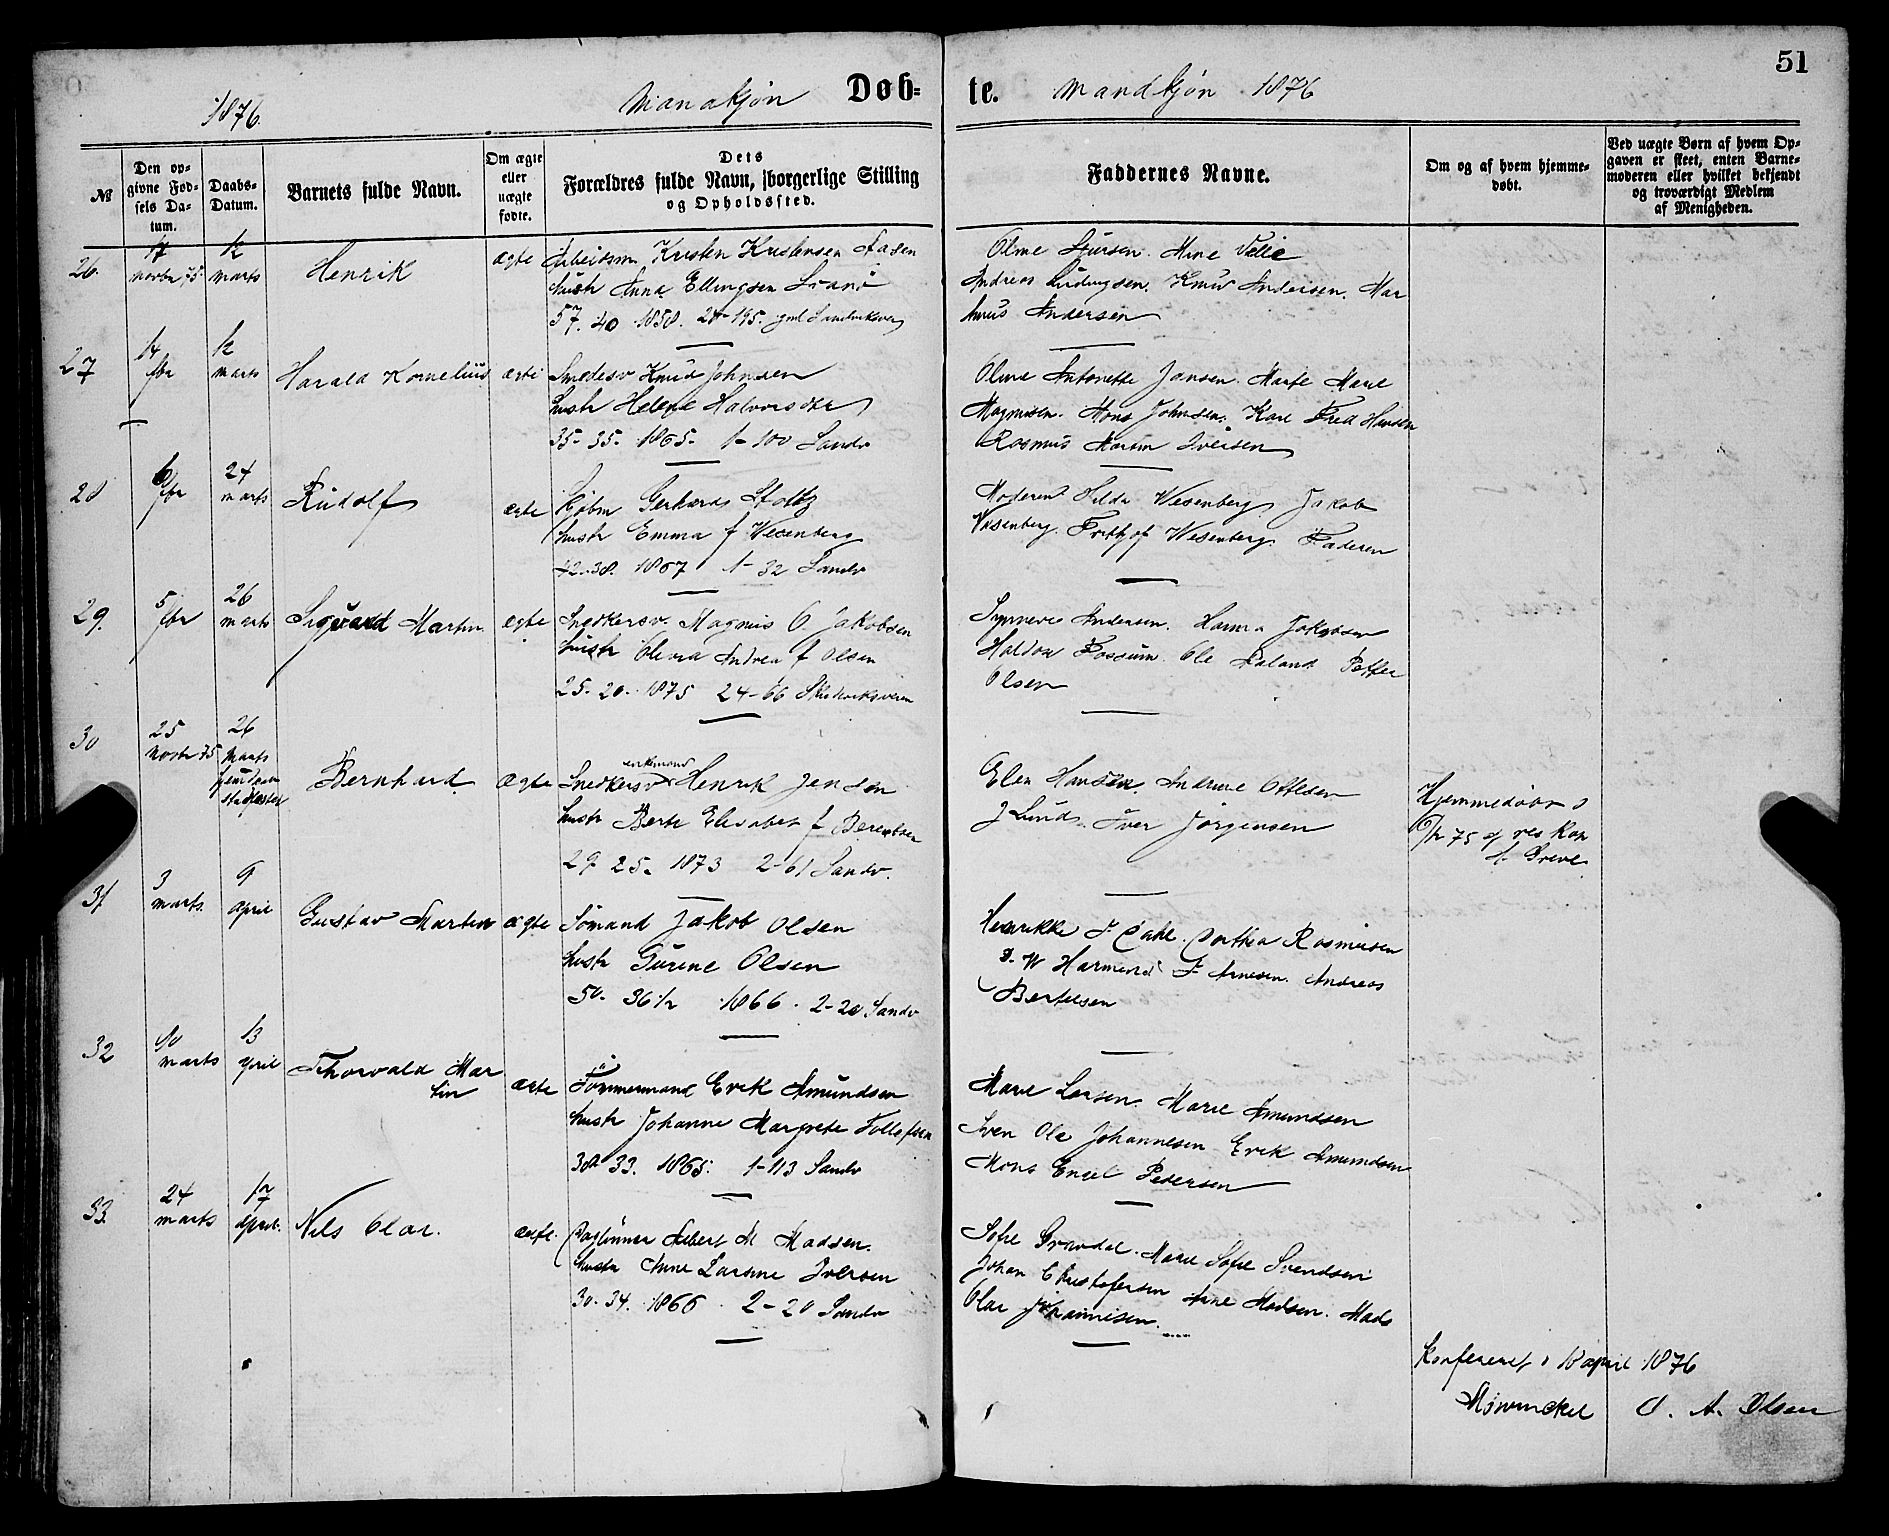 51
1876. Mandkjøn Døb=
te. Mandkjøn 1876
№
Den op-
givne Fød-
sels Da-
tum.
Daabs-
Datum.
Barnets fulde Navn.
Om ægte
eller
uægte
fødte.
Dets
Forældres fulde Navn, borgerlige Stilling
og Opholdssted.
Faddernes Navne.
Om og af hvem hjemme-
døbt.
Ved uægte Børn af hvem Op-
gaven er skeet, enten Barne-
moderen eller hvilket bekjendt
og troværdigt Medlem
af Menigheden.
26.
novbr 75.
marts
Henrik
ægte
Arbeidsm Kristen Kristensen
hustr Anna Ellingsen
57. 40 1858. 24-195. Sandviksvei
Andreas Ludvigsen. Knud Andersen. Mar
kus Andersen
27
14
fbr
12
marts
Harald Kornelius
ægte
Smedesv Knud Johnsen
hustr Helene Halvorsdtr
35-35. 1865- 1-100 Sandv
Oline Antonette Jansen. Marte Marie
Magnusen. Mons Johnsen. Karl Fred Hansen
Rasmus Martin Iversen
28
6
fbr
24
marts
Rudolf
ægte
Kjøbm Gerhard Stoltz
hustr Emma f Wesenberg
42-38. 1867 1-32 Sandv
Moderen Hilda Wesenberg Jakob
Wesenberg. Frithjof Wesenberg. Faderen
29.
5
fbr
26
marts
Sigvard Martin
ægte
Snedkersv. Magnus O. Jakobsen
hustr Olena Andrea f Olsen
25-20. 1875 24-66 Sandviksveien
Synneve Andersen. Hanna Jakobsen
Haldor Fossum. Ole Aaland Petter
Olsen
30
25
Novbr 75
26
Marts
Bernhard
ægte
enkemand
Snedkersv Henrik Jensen
hustr Berte Elisabet f Berentsen
29 25. 1873 2-61 Sandv.
Elen Hansen. Andrine Ottesen
J Lund. Iver Jørgensen
Hjemmedøbt d
75 af res Kap
Greve
31
3
marts.
9
april
Gustav Martin
ægte
Sömand Jakob Olsen
hustr Gurine Olsen
50. 36 1/2 1866. 2-20 Sandv
Henrikke J. Dahl. Dorthea Rasmusen
D. W Harmens F. Arnesen. Andreas
Bertelsen
32
10
marts
13
April
Thorvald Mar
tin
ægte
Tömmermand Erik Amundsen
hustr Johanne Margrete Tollefsen
38 33. 1865. 1-113 Sandv
Marie Larsen. Marie Amundsen
Sven Ole Johannesen Erik Amundsen
Mons Engel Pedersen
33.
24
marts
17
April.
Nils Olai.
ægte.
Daglönner Albert M Madsen.
hustr Anne Larsine Iversen
30-34. 1866. 2-20 Sandv
Sofie Grøndal. Marie Sofie Svendsen
Johan Christofersen Arne Madsen. Mads
Olai Johannesen.
Konfereret 18 april 1876
Mowinckel O. A. Olsen